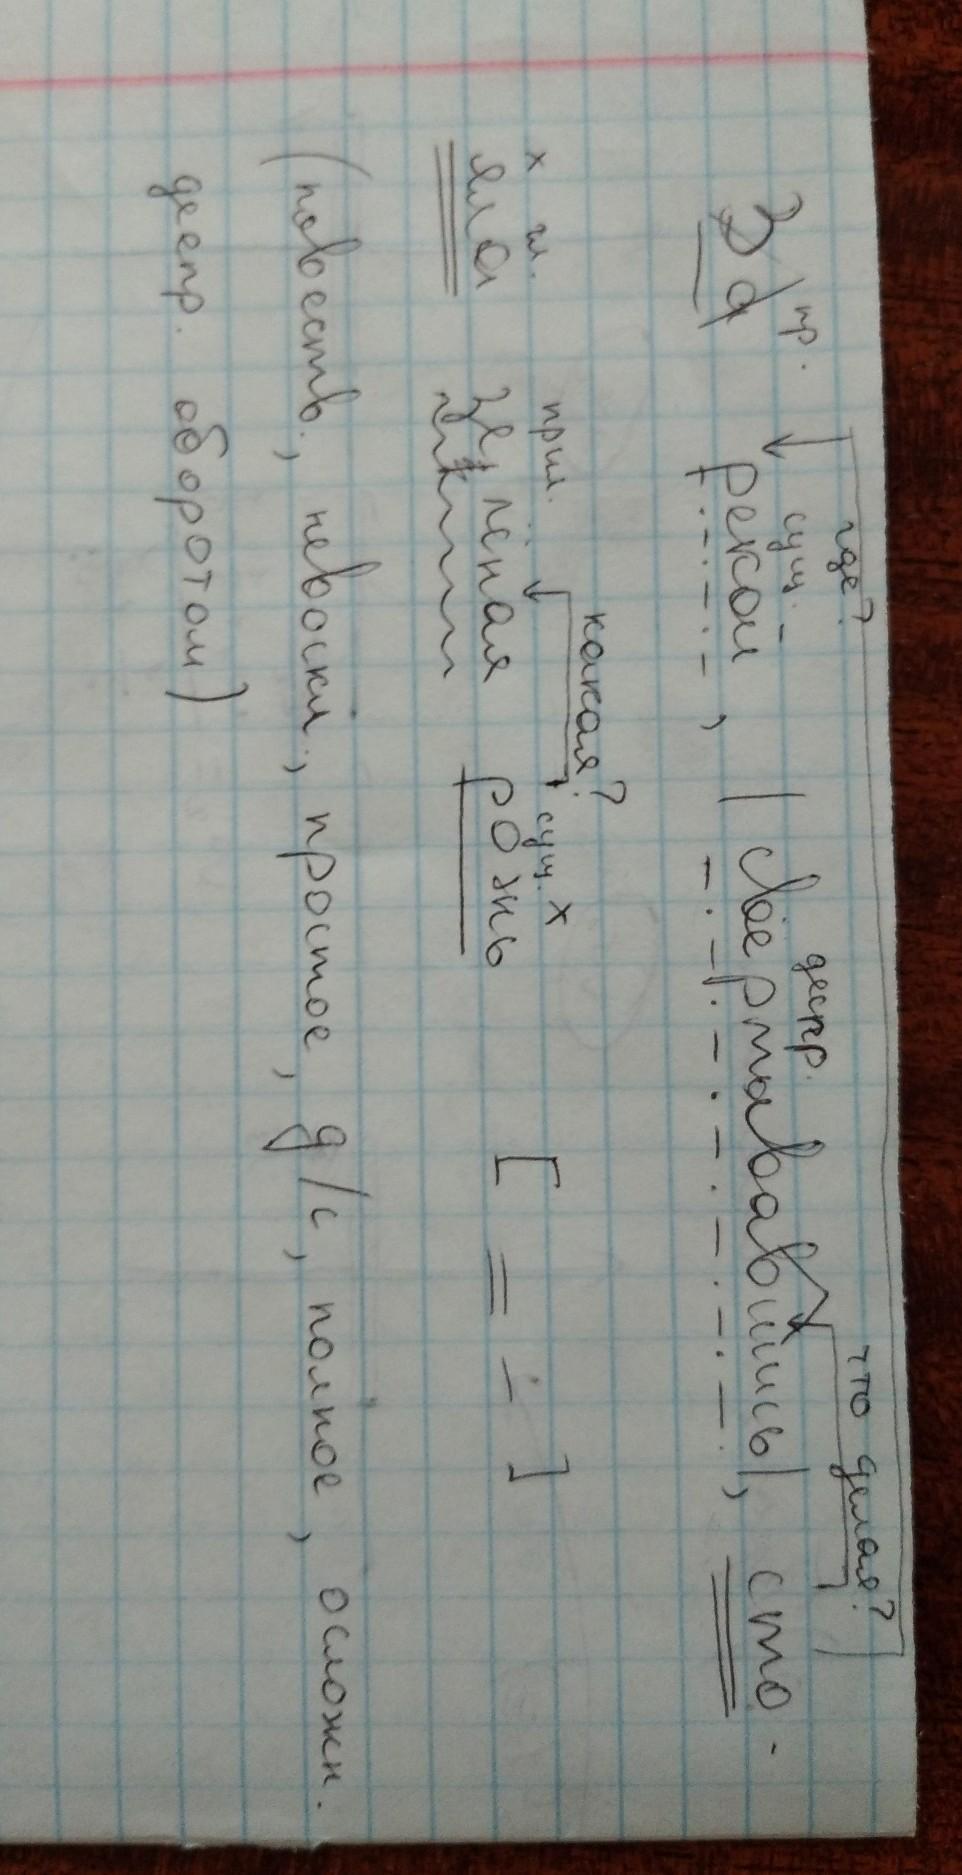 где? что делая?
пр. сущ. деепр.
За рекой, | свёртывавшись|, сто-
какая?
х гл. прил. сущ. х
яла зелёная рожь [ = - ]
(повеств., невоскл., простое, д/с, полное, осложн.
деепр. оборотом)